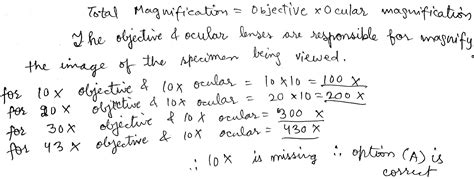 Total Magnification = Objective × Ocular magnification
The objective & ocular lenses are responsible for magnify
the image of the specimen being viewed.
for 10X objective & 10X ocular = 10×10 = 100 X
for 20X objective & 10X ocular = 20×10 = 200 X
for 30X objective & 10X ocular = 300 X
for 43X objective & 10X ocular = 430 X
∴ 10X is missing ∴ option (A) is
correct